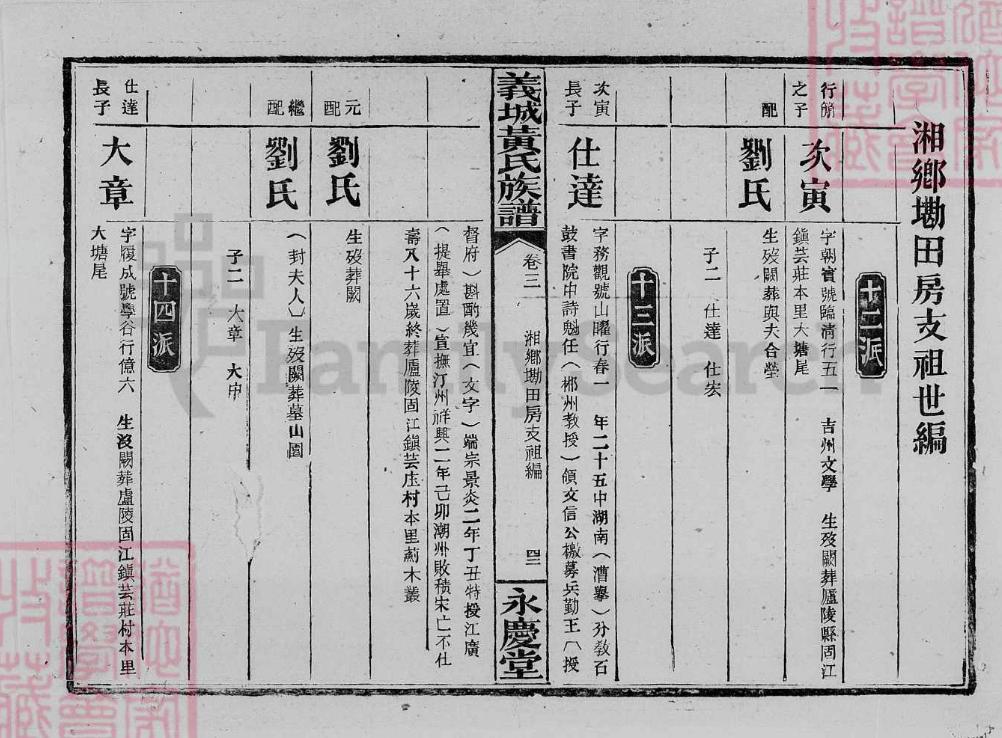 湘鄉墈田房支祖世編
十二派
行簡
之子
次寅
字朝賓號臨清行五一 吉州文學 生歿闕葬廬陵縣固江
鎮芸莊本里大塘尾
配
劉氏
生歿闕葬與夫合塋
子二 仕達 仕宏
十三派
次寅
長子
仕達
字務觀號山曜行春一 年二十五中湖南（漕擧）分敎石
鼓書院中詩魁任（郴州教授）領文信公檄募兵勤王（授
義城黃氏族譜
卷三
湘鄉墈田房支祖編
四三
永慶堂
督府）斟酌幾宜（文字）端宗景炎二年丁丑特授江廣
（提舉處置）宣撫汀州祥興二年己卯潮州敗積宋亡不仕
壽八十六歲終葬廬陵固江鎮芸庄村本里薊木叢
元
配
劉氏
生歿葬闕
繼
配
劉氏
（封夫人）生歿闕葬墓山園
子二 大章 大申
十四派
仕達
長子
大章
字履成號學谷行億六 生沒闕葬盧陵固江鎮芸莊村本里
大塘尾
FamilySearch